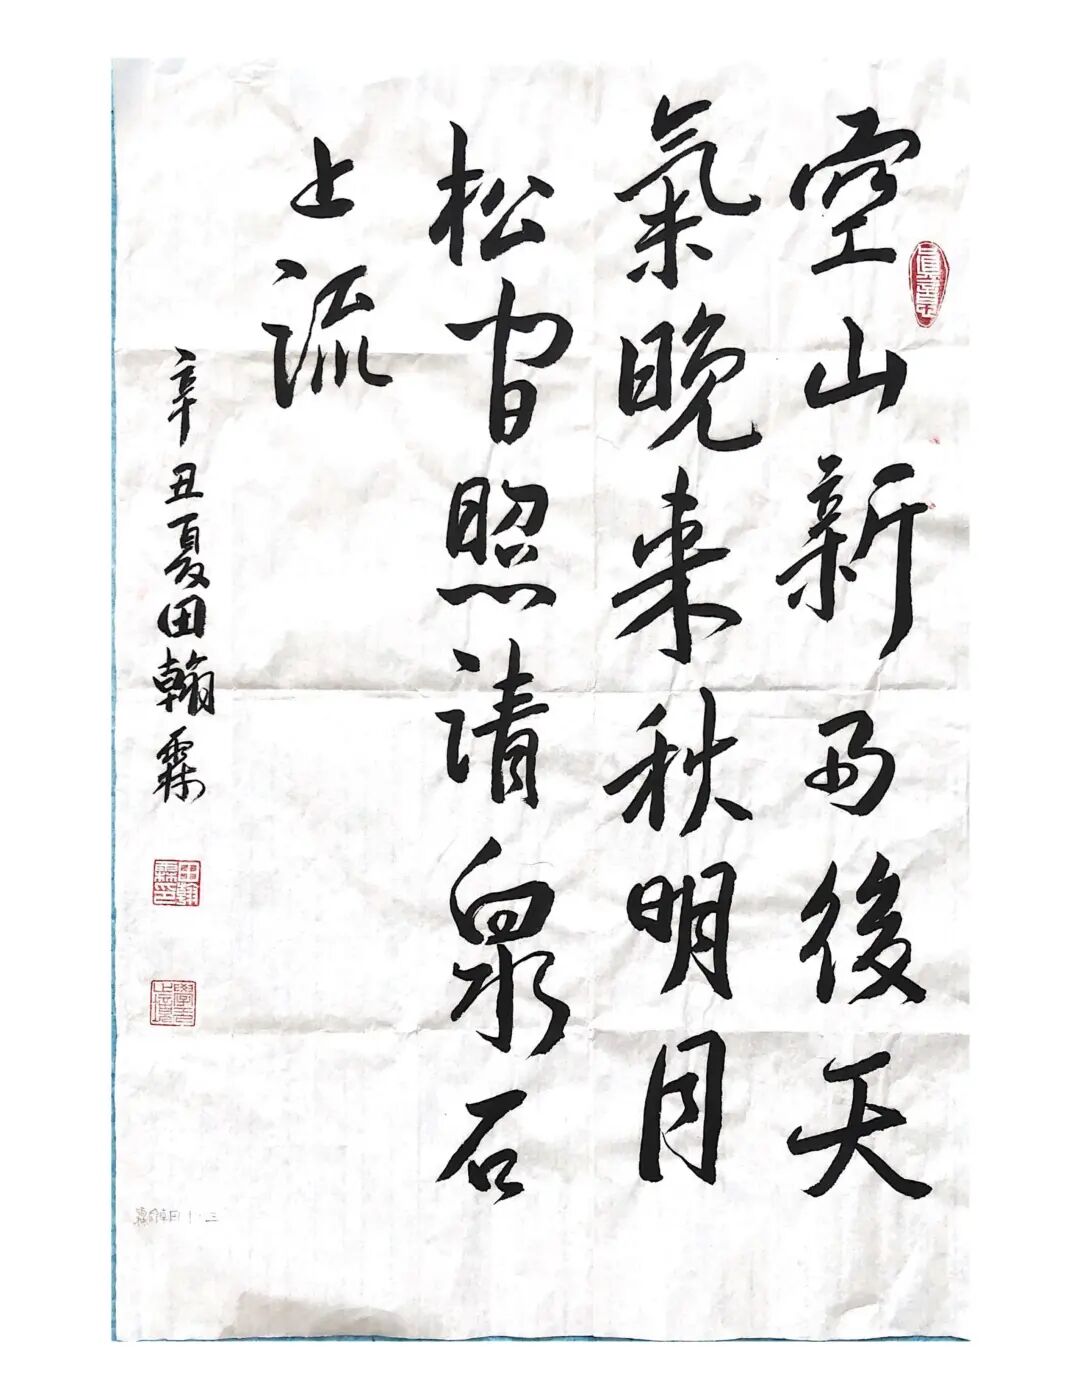 空山新雨後天
氣晚来秋明月
松間照清泉石
上流
辛丑夏田翰霖
田翰霖印